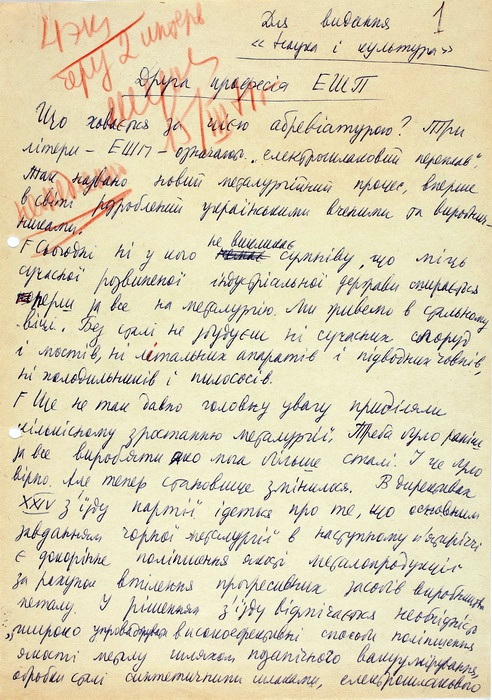 1
Для видання
«Наука і культура»
4 экз
беру 2 интерв
Друга професія ЕШП
Що ховається за цією абревіатурою? Три
літери – ЕШП – означають „електрошлаковий переплав"
Так названо новий металургійний процес, вперше
в світі розроблений українськими вченими та виробнич-
никами.
Сьогодні ні у кого не викликає сумніву, що міць
сучасної розвиненої індустріальної держави спирається
перш за все на металургію. Ми живемо в стальному
віці. Без сталі не збудуєш ні сучасних споруд
і мостів, ні літальних апаратів і підводних човнів,
ні холодильників і пилососів.
Ще не так давно головну увагу приділяли
кількісному зростанню металургії. Треба було раніш
за все виробляти яко мога більше сталі. І це було
вірно. Але тепер становище змінилося. В директивах
XXIV з'їзду партії ідеться про те, що основним
завданням чорної металургії в наступному п'ятиріччі
є докорінне поліпшення якості металопродукції
за рахунок втілення прогресивних засобів виробництва
металу. У рішеннях з'їзду відмічається необхідність
„широко упроваджувати високоефективні способи поліпшення
якості металу шляхом позапічного вакуумірування,
обробки сталі синтетичними шлаками, електрошлакового